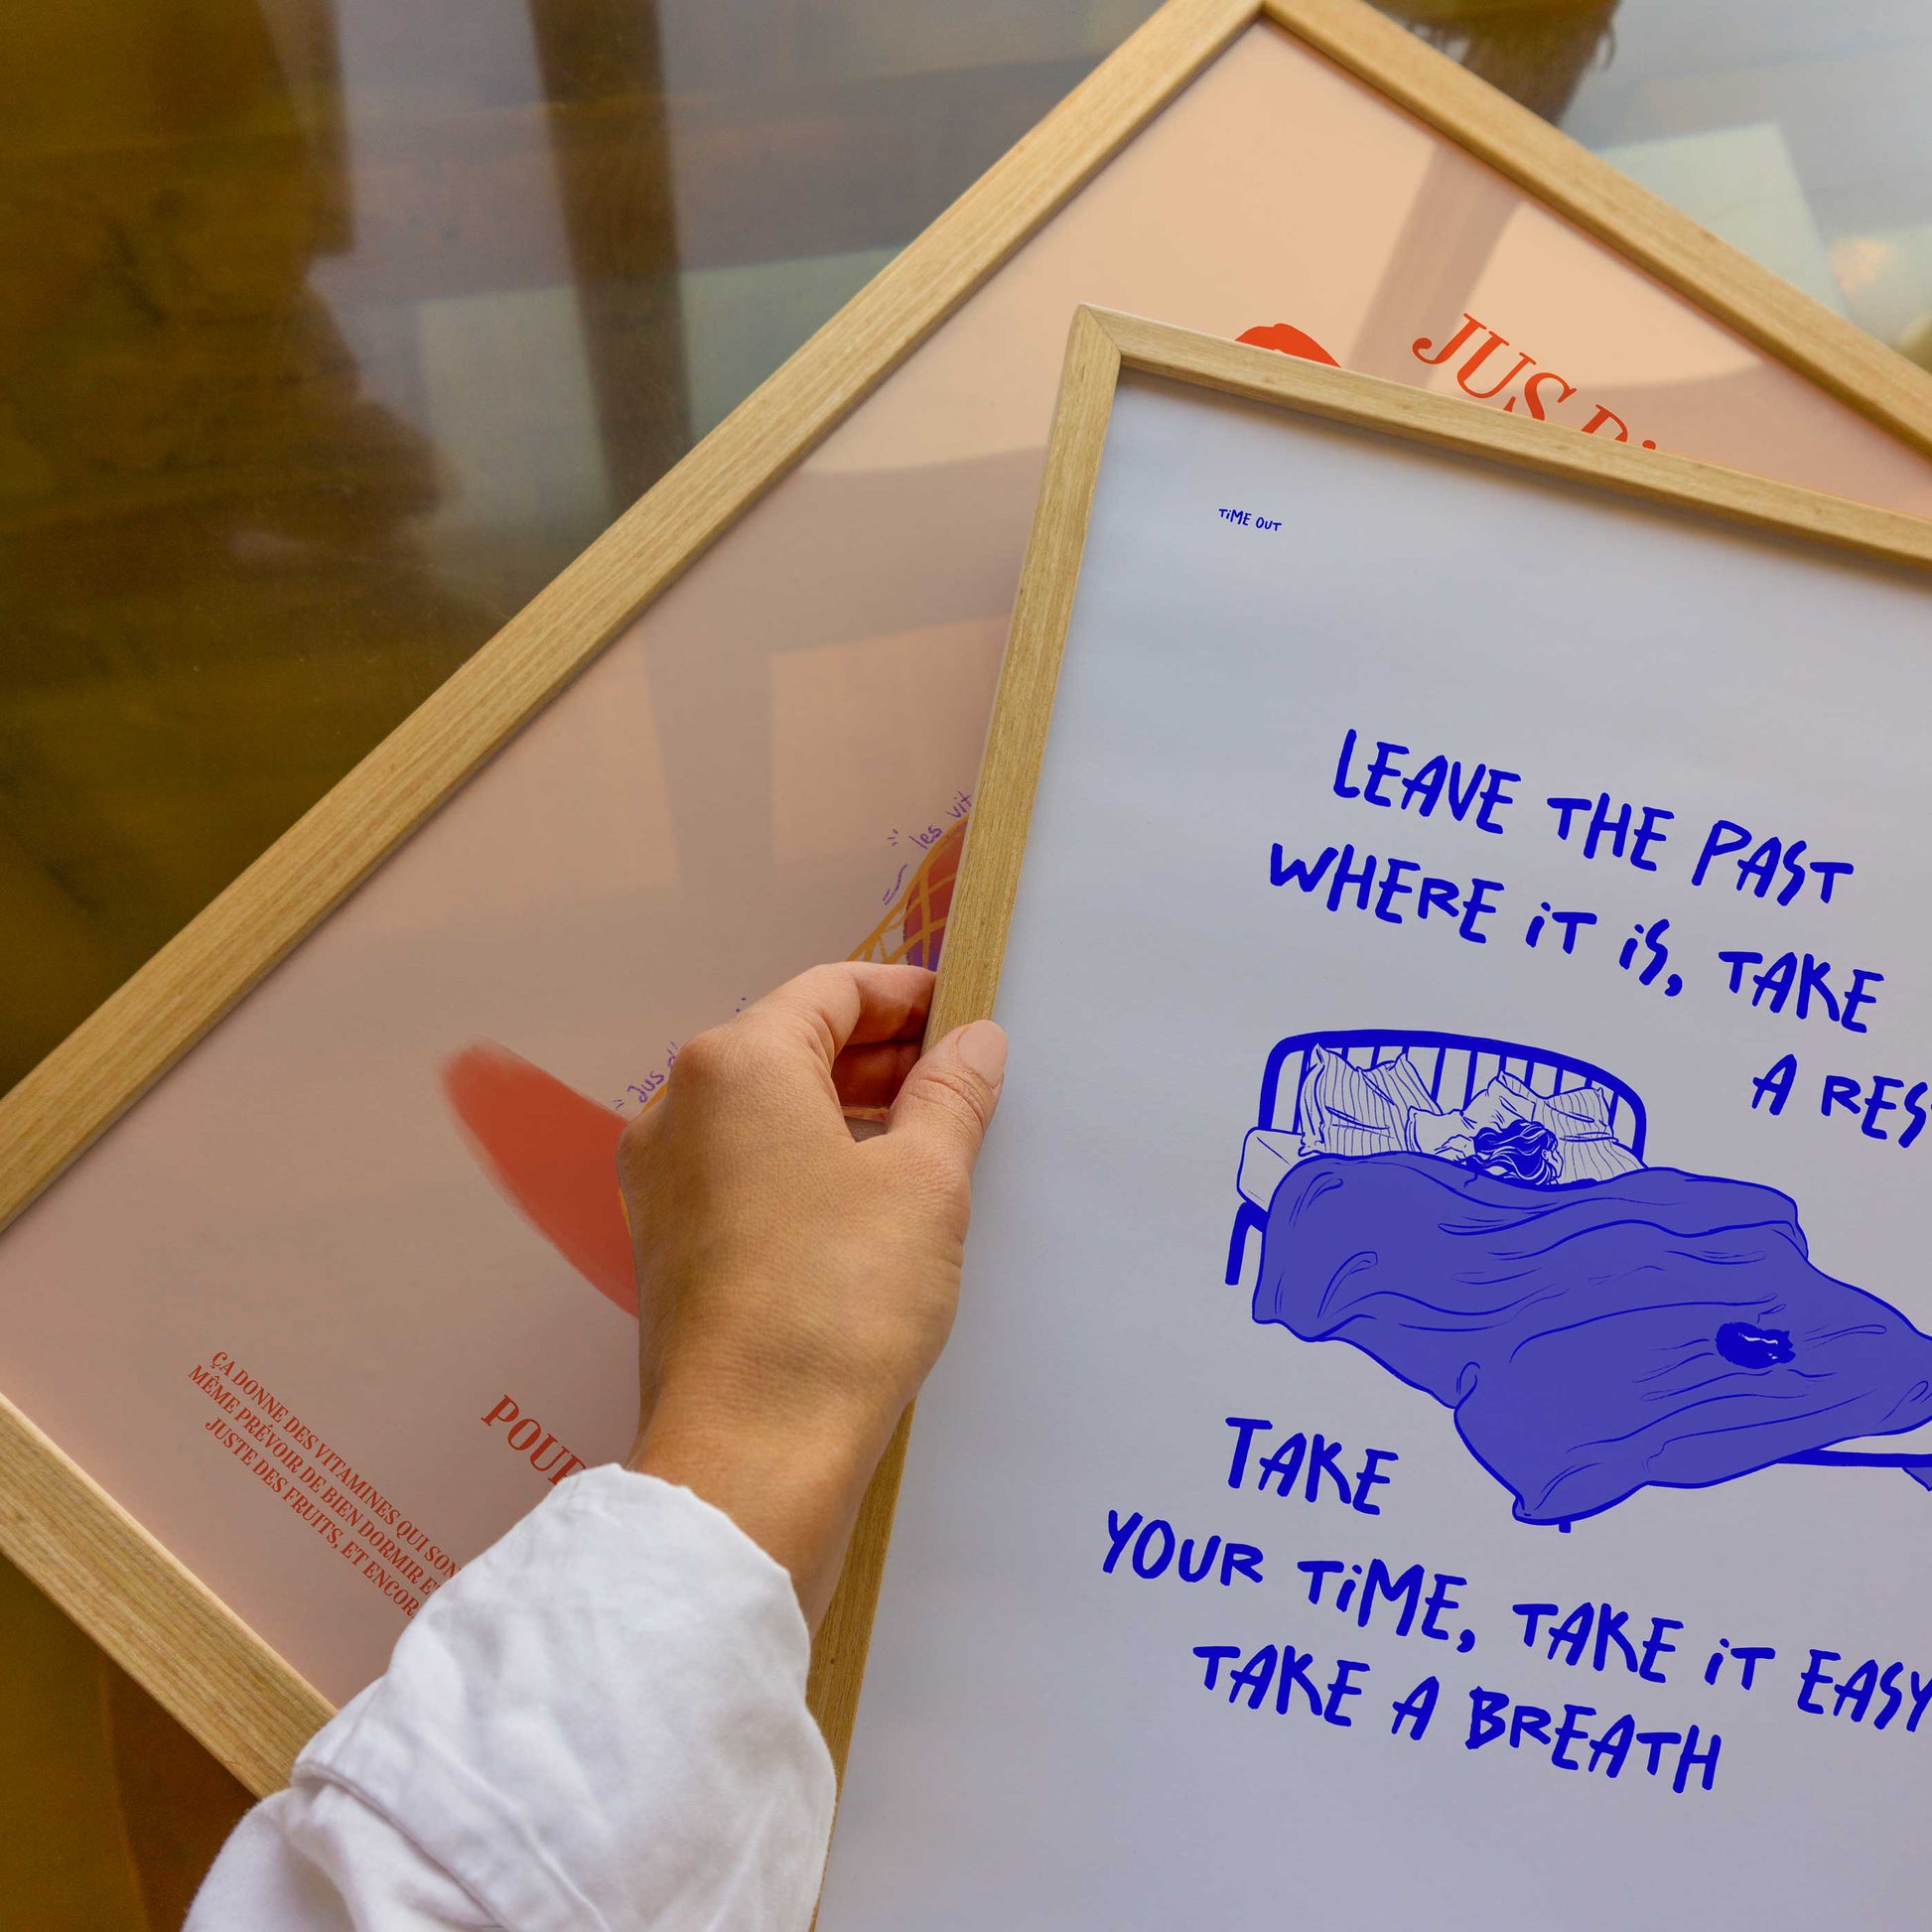 JUS
les
Jus
ÇA DONNE DES VITAMINES QUI SON
MÊME PRÉVOIR DE BIEN DORMIR E
JUSTE DES FRUITS, ET ENCOR
POUR
TiME OUT
LEAVE THE PAST
WHERE iT iS, TAKE
A RES
TAKE
YOUR TiME, TAKE iT EASY
TAKE A BREATH